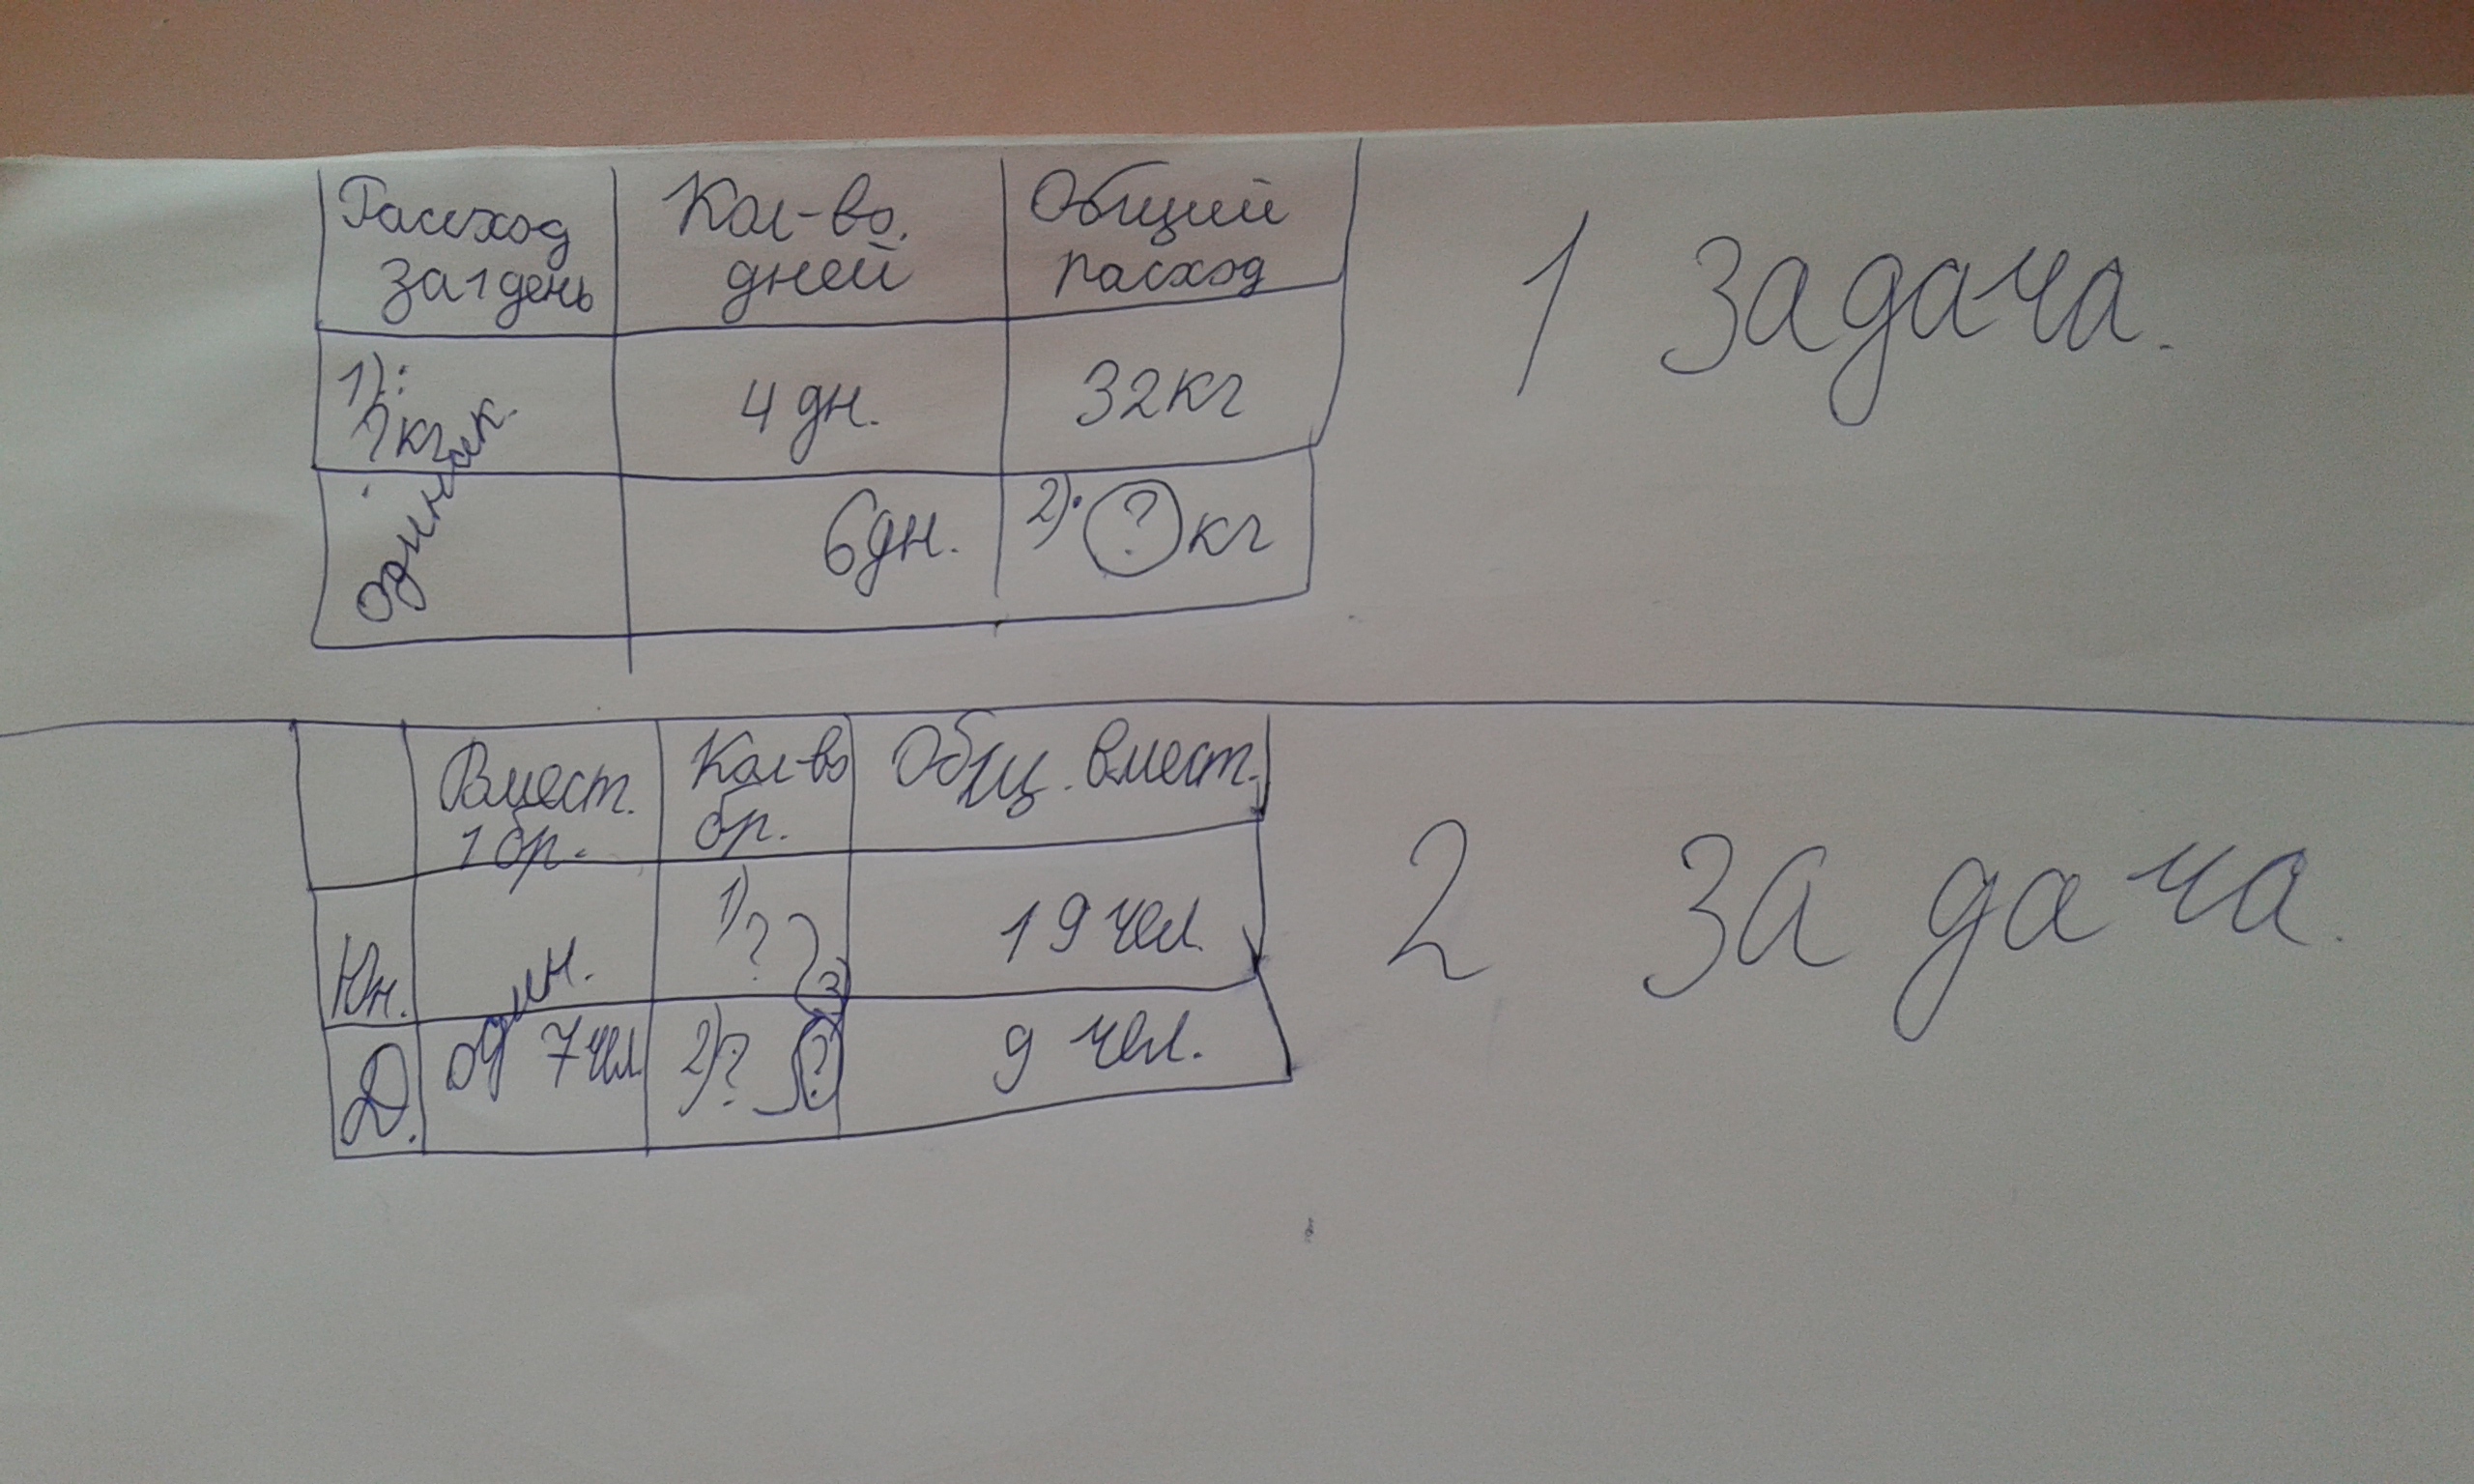 Рассход за 1 день
Кол-во. дней
Общий расход
1): ? кг
4 дн.
32кг
одинак.
6дн.
2). ? кг
1 задача.
Вмест. 1 бр.
Кол-во бр.
Общ. вмест.
Юн.
один.
1) ?
19 чел.
3)
Д.
7 чел.
2) ?
?
9 чел.
2 задача.